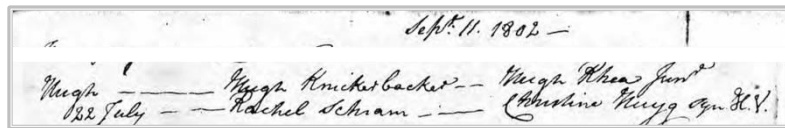 Sept. 11. 1802 —
Hugh — — — Hugh Knickerbacker — — Hugh Rhea Junr
22 July — — Rachel Schram — — Christine Muyg syn H. V.